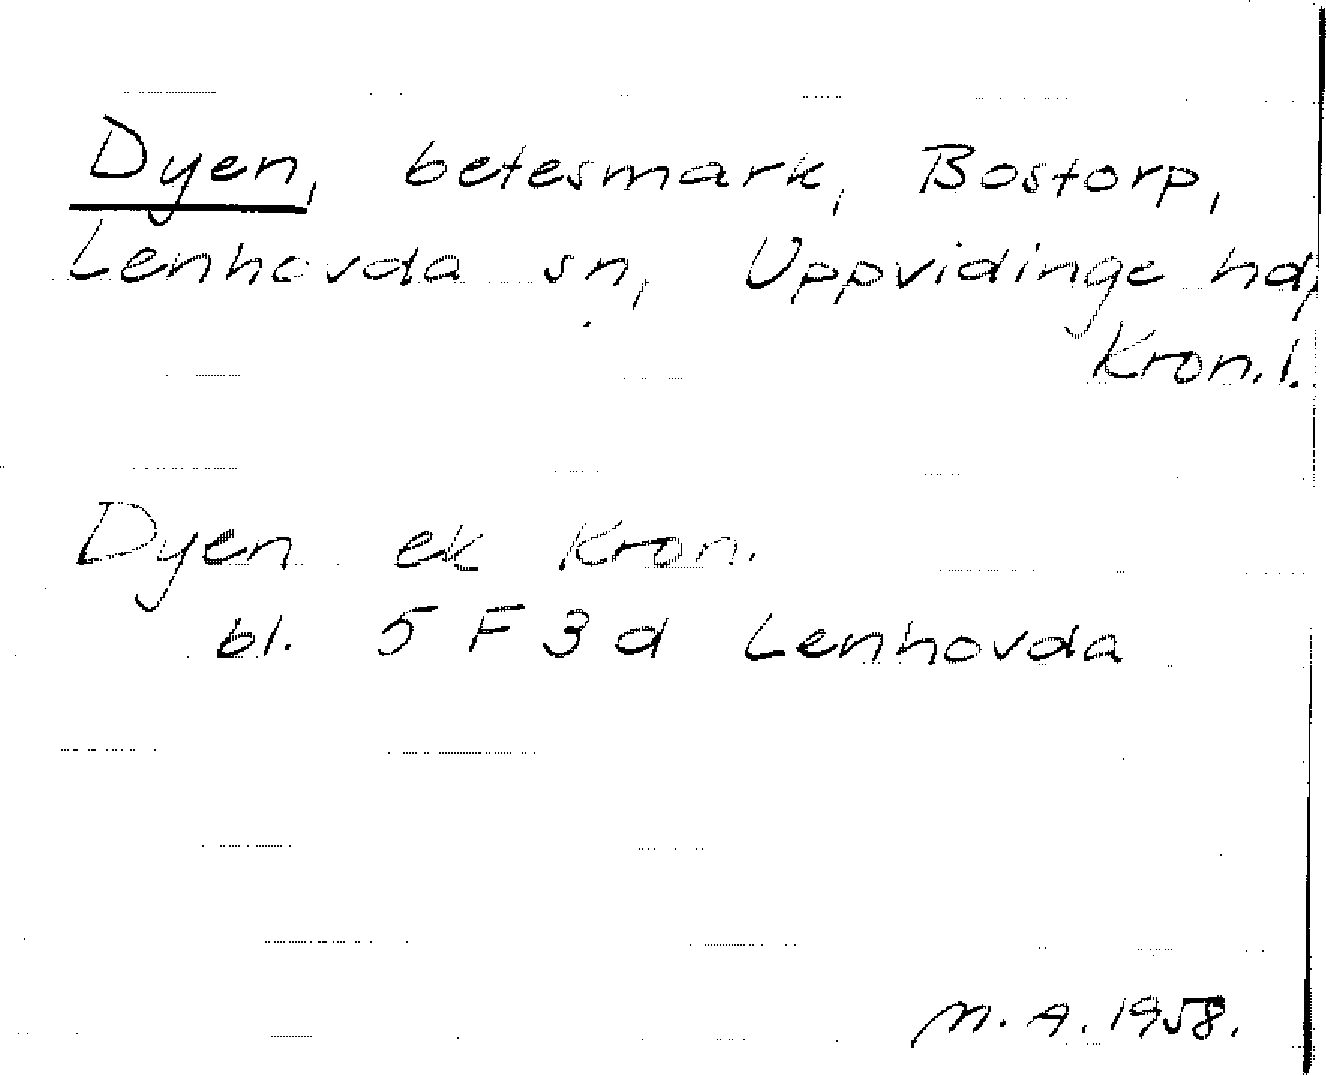 Dyen, betesmark, Bostorp,
Lenhovda sn, Uppvidinge hd,
Kron.l.
Dyen ek Kron.
bl. 5 F 3 d Lenhovda
M.A. 1958.